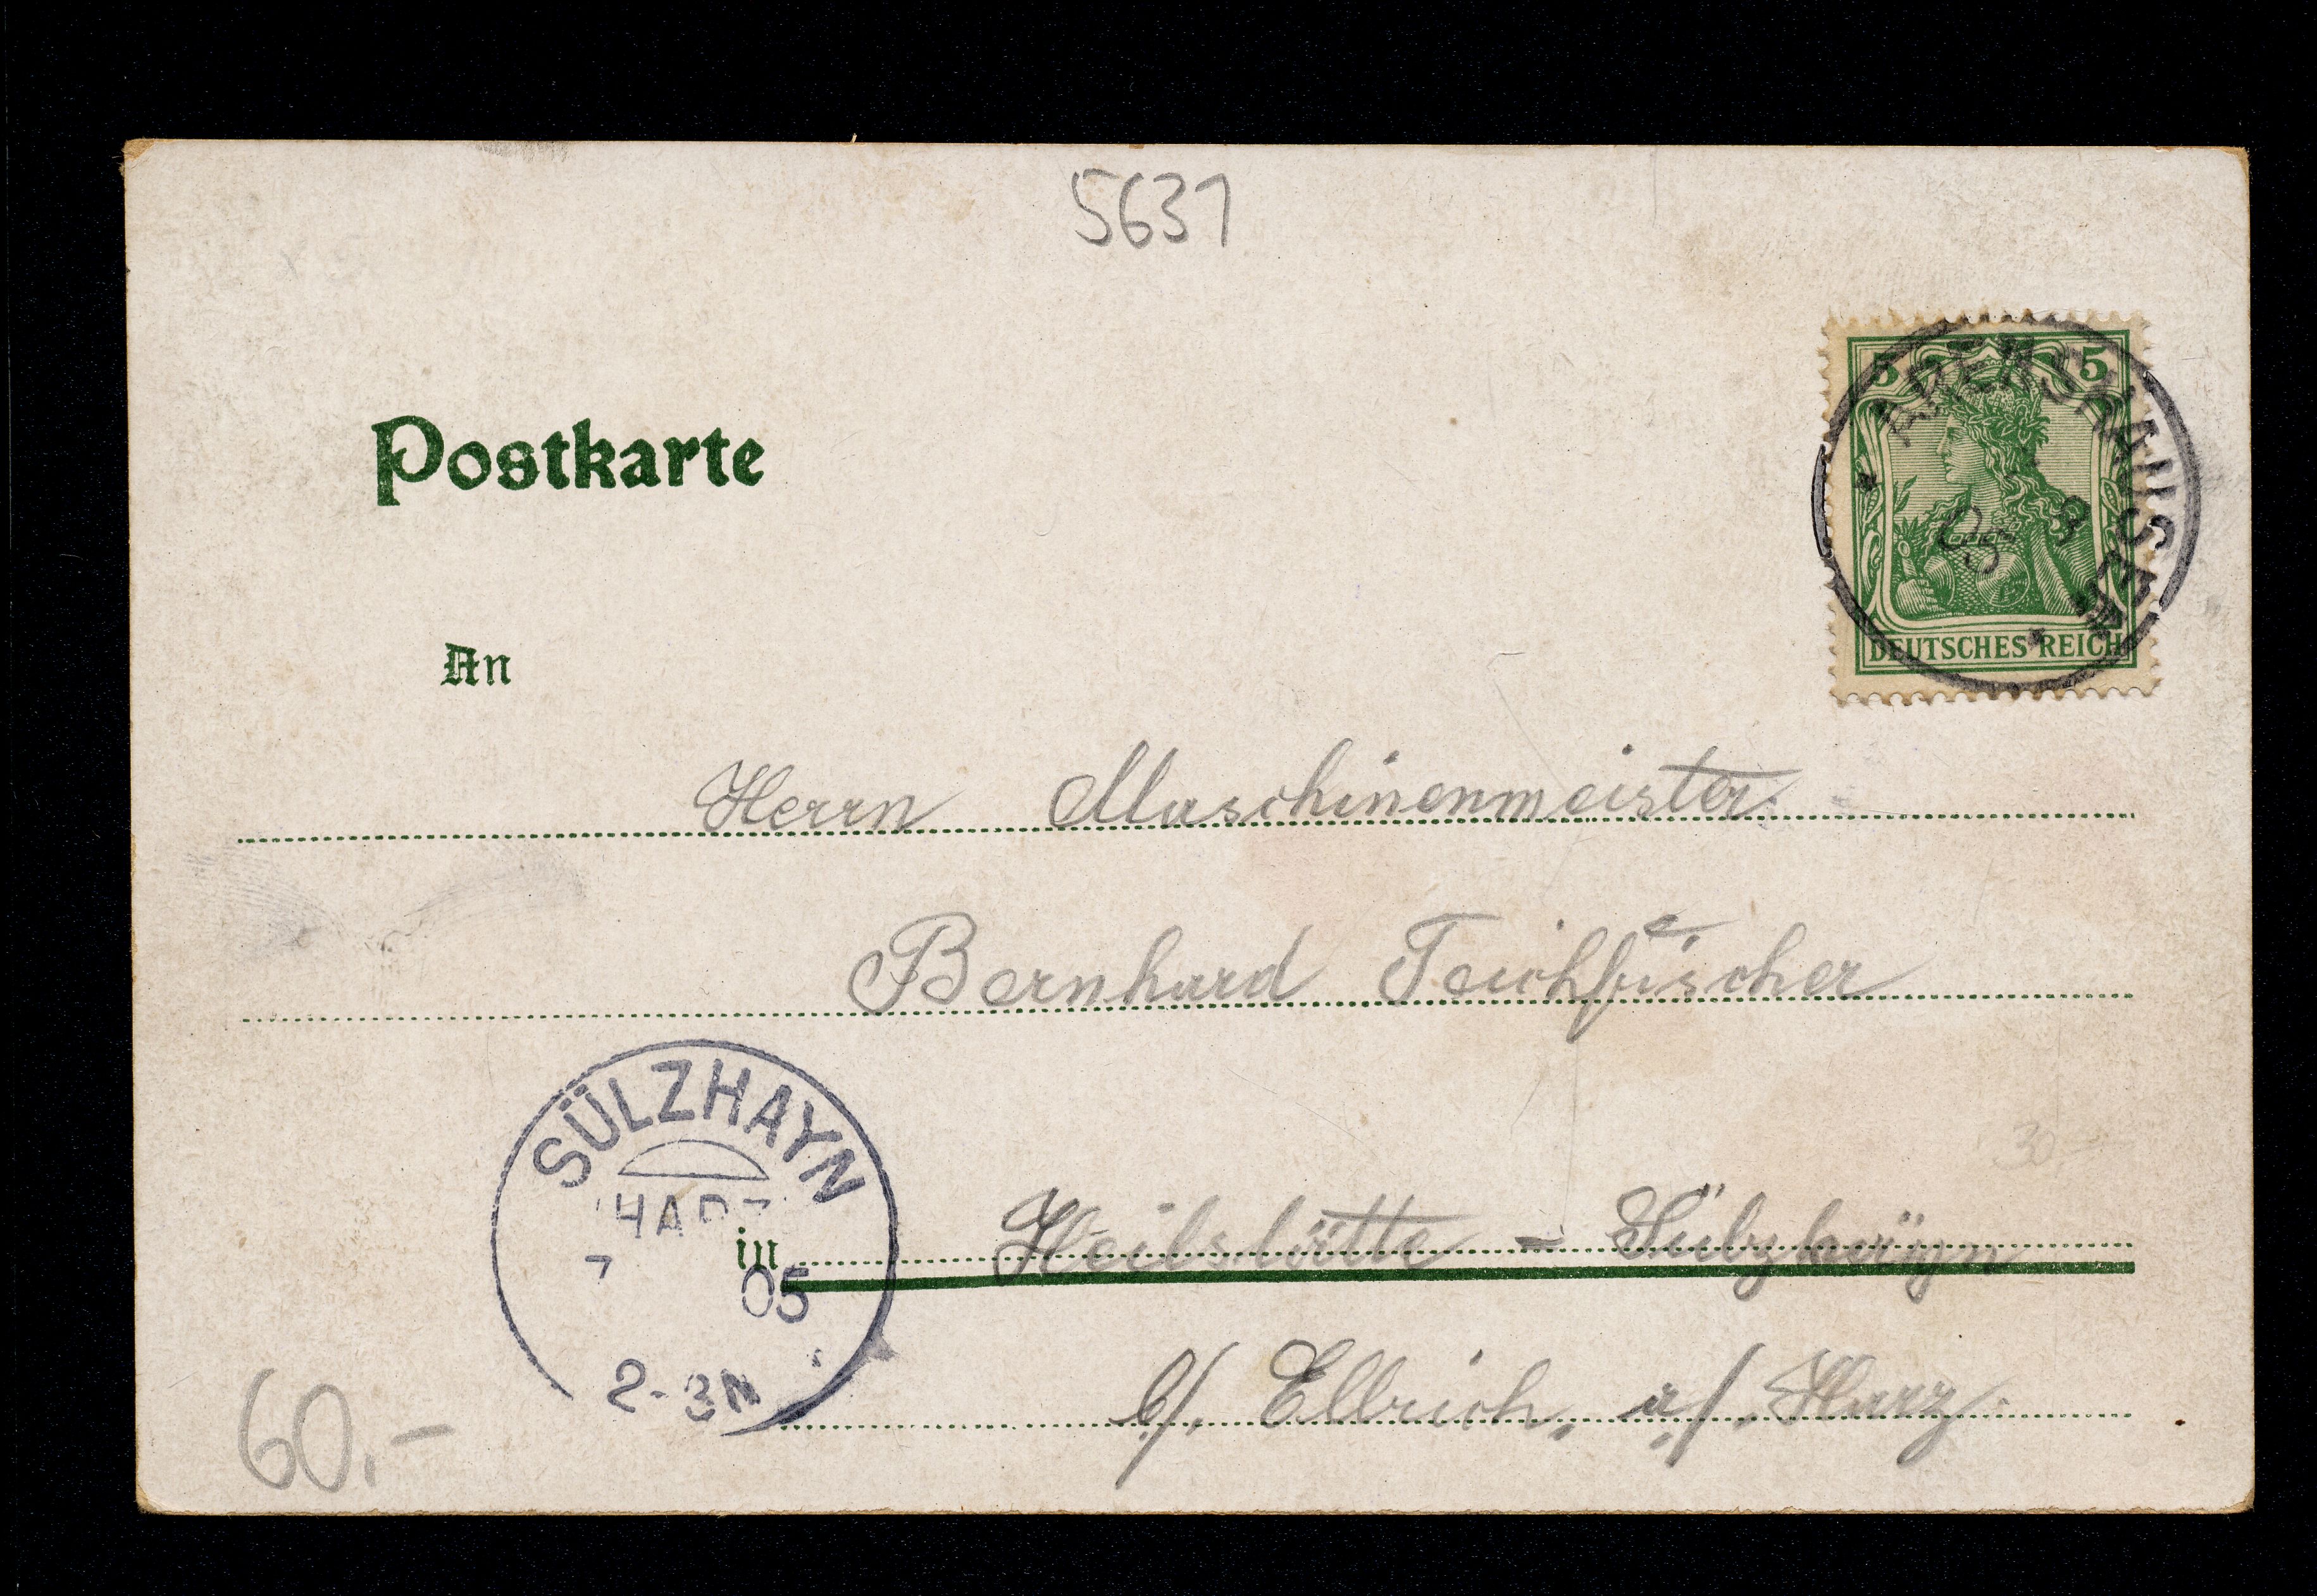 5631
5 5
ADERSHAUSEN
8
05
DEUTSCHES REICH
Postkarte
An
Herrn Maschinenmeister.
Bernhard Teichfischer
30,-
SÜLZHAYN
HARZ
7 05
2-3N
in Heilstätte - Sülzhayn
b/. Ellrich, a/. Harz.
60,-